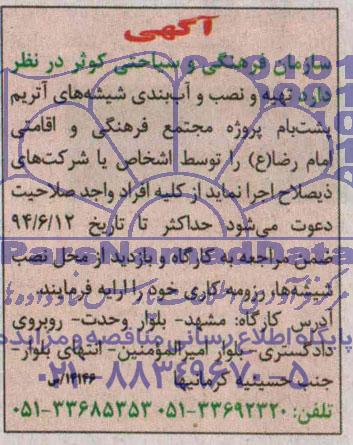 آگهی
سازمان فرهنگی و سیاحتی کوثر در نظر
دارد تهیه و نصب و آب‌بندی شیشه‌های آتریم
پشت‌بام پروژه مجتمع فرهنگی و اقامتی
امام رضا(ع) را توسط اشخاص یا شرکت‌های
ذیصلاح اجرا نماید از کلیه افراد واجد صلاحیت
دعوت می‌شود حداکثر تا تاریخ ۹۴/۶/۱۲
ParsNamadData
ضمن مراجعه به کارگاه و بازدید از محل نصب
شیشه‌ها، رزومه کاری خود را ارایه فرمایند.
آدرس کارگاه: مشهد- بلوار وحدت- روبروی
پایگاه اطلاع رسانی مناقصه و مزایده
دادگستری- بلوار امیرالمؤمنین- انتهای بلوار-
جنب حسینیه کرمانیها
۰۲۱-۸۸۳۴۹۶۷۰-۵
تلفن: ۳۳۶۹۲۳۲۰-۰۵۱ ۳۳۶۸۵۳۵۳-۰۵۱